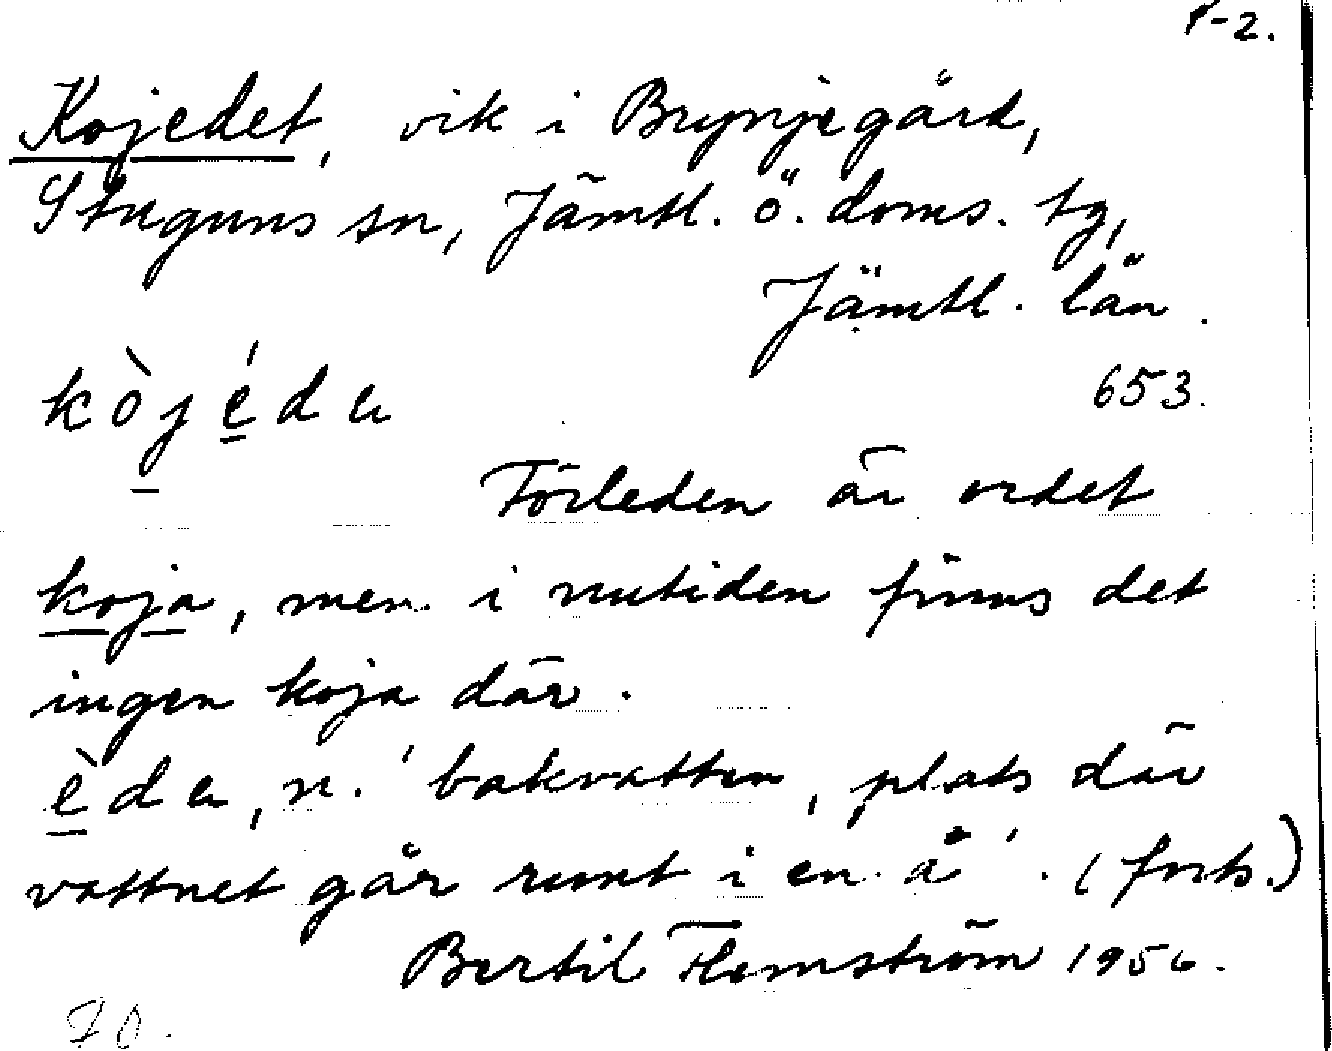 1-2.
Kojedet, vik i Brynjegård,
Stuguns sn, Jämtl. ö. doms. tg,
Jämtl. län.
653.
kòjéda
Förleden är ordet
koja, men i nutiden finns det
ingen koja där.
èda, n. 'bakvatten, plats där
vattnet går runt i en å'. (forts.)
Bertil Flemström 1956.
70.